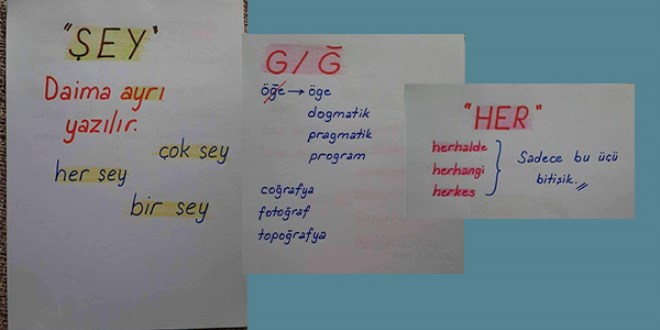 "ŞEY"
Daima ayrı
yazılır.
çok şey
her şey
bir şey
G/Ğ
öğe → öge
dogmatik
pragmatik
program
coğrafya
fotoğraf
topoğrafya
"HER"
herhalde
herhangi
herkes
Sadece bu üçü
bitişik.